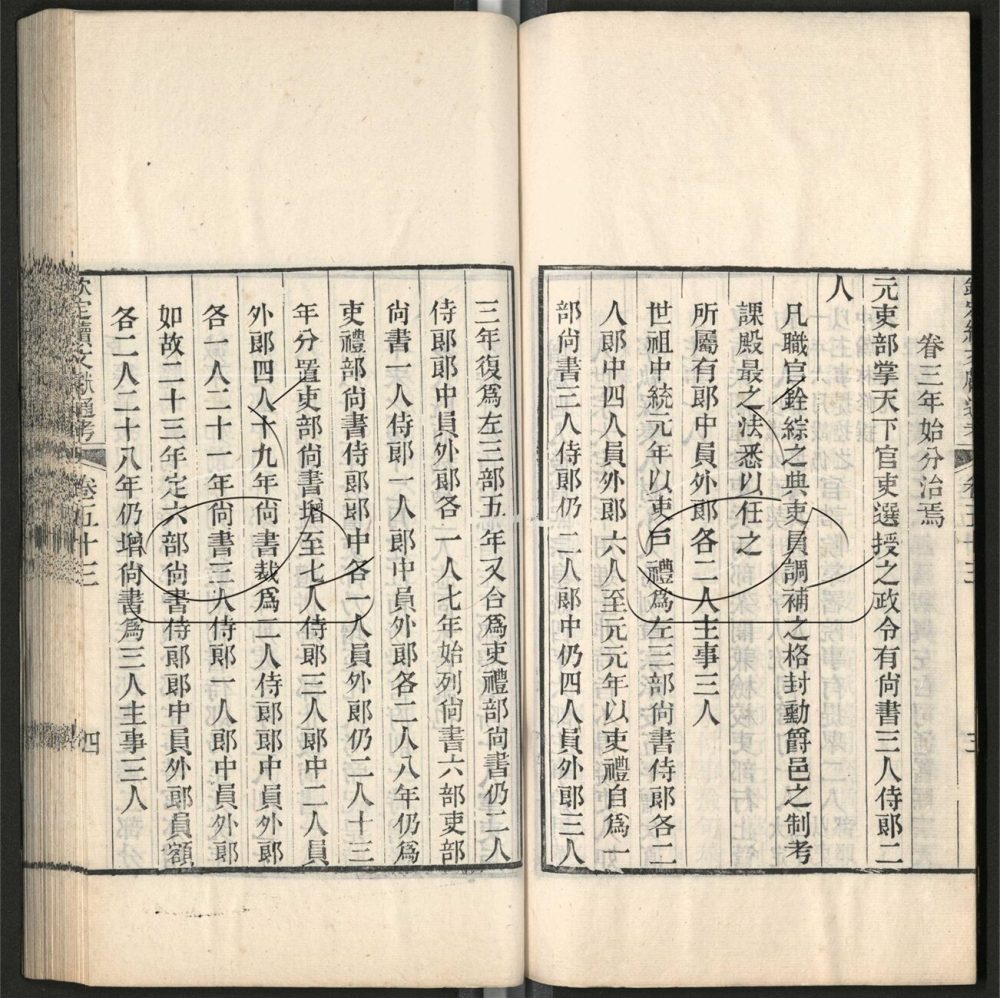 眷三年始分治焉
元吏部掌天下官吏選授之政令有尙書三人侍郞二
人
凡職官銓綜之典吏員調補之格封勳爵邑之制考
課殿最之法悉以任之
所屬有郞中員外郞各二人主事三人
世祖中統元年以吏戸禮爲左三部尙書侍郞各二
人郞中四人員外郞六人至元元年以吏禮自爲一
部尙書三人侍郞仍二人郞中仍四人員外郞三人
三年復爲左三部五年又合爲吏禮部尙書仍二人
侍郞郞中員外郞各一人七年始列尙書六部吏部
尙書一人侍郞一人郞中員外郞各二人八年仍爲
吏禮部尙書侍郞郞中各一人員外郞仍二人十三
年分置吏部尙書增至七人侍郞三人郞中二人員
外郞四人十九年尙書裁爲二人侍郞郞中員外郞
各一人二十一年尙書三人侍郞一人郞中員外郞
如故二十三年定六部尙書侍郞郞中員外郞員額
各二人二十八年仍增尙書爲三人主事三人
欽定續文獻通考 卷五十三 四